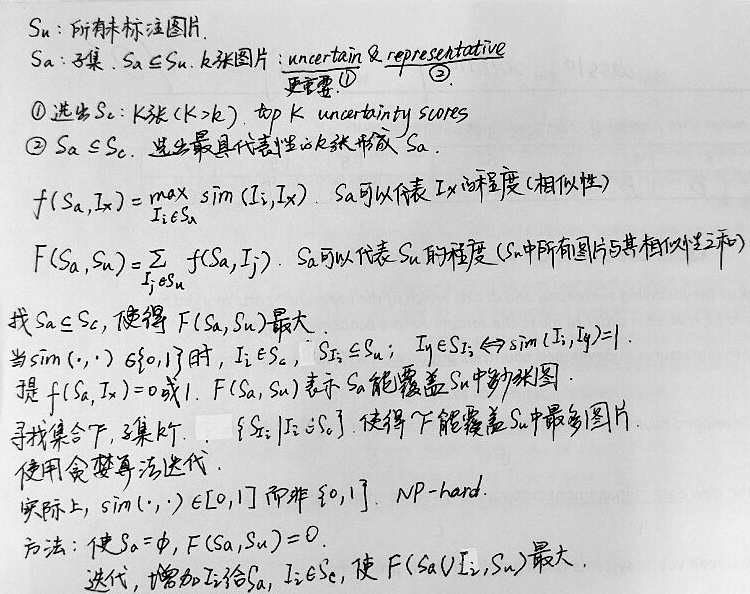 Su: 所有未标注图片.
Sa: 子集. Sa⊆Su. k张图片: uncertain & representative
更重要. ① ②.
① 选出Sc: K张(K>k). top K uncertainty scores
② Sa⊆Sc. 选出最具代表性的k张形成Sa.
f(Sa,Ix)=max sim(Ii,Ix). Sa可以代表Ix的程度(相似性)
Ii∈Sa
F(Sa,Su)=∑ f(Sa,Ij). Sa可以代表Su的程度(Su中所有图片与其相似性之和)
Ij∈Su
找Sa⊆Sc, 使得F(Sa,Su)最大
当sim(·,·)∈{0,1}时, Ii∈Sc, SIi⊆Su; Iy∈SIi⇔sim(Ii,Iy)=1.
于是f(Sa,Ix)=0或1. F(Sa,Su)表示Sa能覆盖Su中多少张图.
寻找集合T, 子集k个. {SIi|Ii∈Sc}. 使得T能覆盖Su中最多图片.
使用贪婪算法迭代.
实际上, sim(·,·)∈[0,1]而非{0,1}. NP-hard.
方法: 使Sa=ϕ, F(Sa,Su)=0.
迭代, 增加Ii给Sa, Ii∈Sc, 使F(Sa∪Ii,Su)最大.